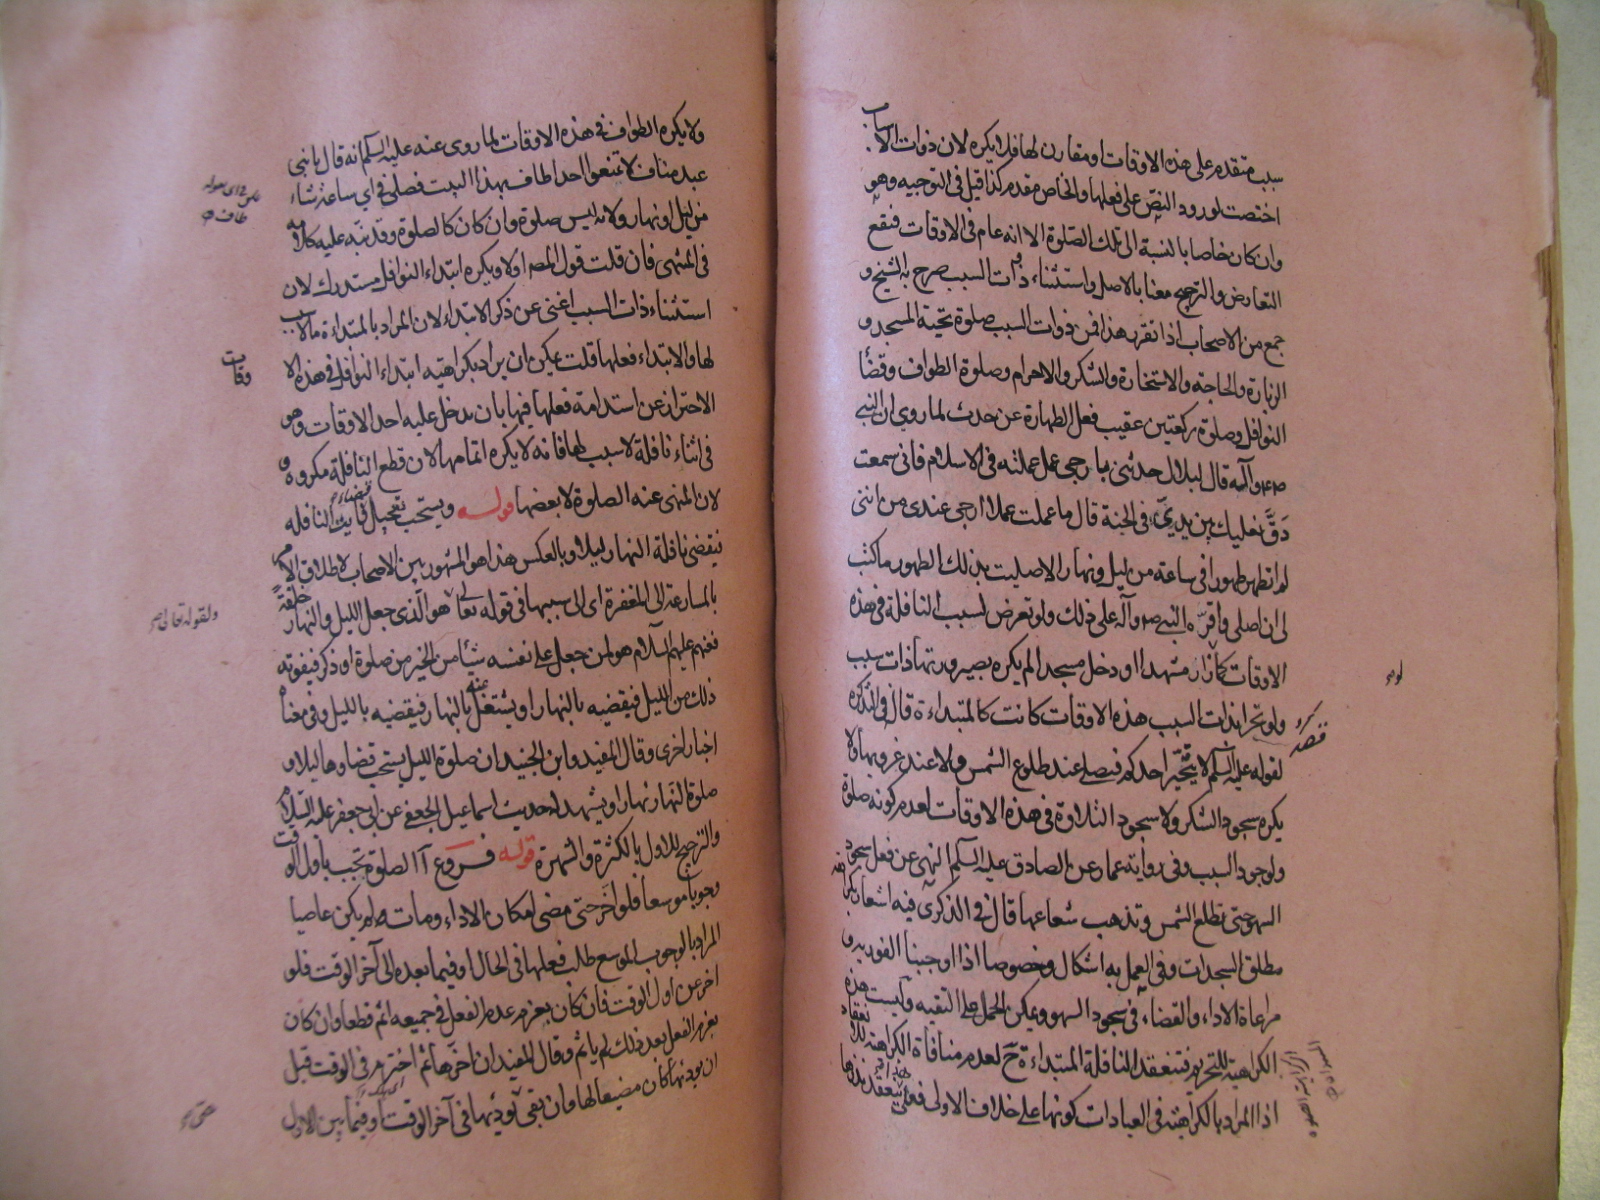 سبب متقدم على هذه الاوقات او مقارن لها فلا يكره لان ذوات الاسباب
اختصت لورود النص على فعلها والخاص مقدم كذا قيل في التوجيه وهو
وان كان خاصا بالنسبة الى تلك الصلوة الا انه عام في الاوقات فيقع
التعارض والترجيح معنا بالاصل واستثناء ذوات السبب صرح به الشيخ و
جمع من الاصحاب اذا تقرر هذا فمن ذوات السبب صلوة تحية المسجد و
الزيارة والحاجة والاستخارة والشكر والاحرام وصلوة الطواف وقضأ
النوافل وصلوة ركعتين عقيب فعل الطهارة عن حدث لما روي ان النبي
وآله قال لبلال حدثني بارجى عمل عملته في الاسلام فاني سمعت
دق نعليك بين يدي في الجنة قال ما عملت عملا ارجى عندي من انني
لم اتطهر طهورا في ساعة من ليل ونهار الا صليت بذلك الطهور ما كتب
لي ان اصلي واقره النبي ص وآله على ذلك ولو تعرض لسبب النافلة في هذه
الاوقات كما زار مشهدا او دخل مسجدا لم يكره لصيرورتها ذات سبب
ولو تحرا بذات السبب هذه الاوقات كانت كالمبتداءة قال في التذكرة
لقوله عليه السلم لا يتحير احدكم فيصلي عند طلوع الشمس ولا عند غروبها ولا
يكره سجود الشكر ولا سجود التلاوة في هذه الاوقات لعدم كونه صلوة
ولوجود السبب وفي رواية عمار عن الصادق عليه السلم النهي عن فعل سجود
السهو حتى تطلع الشمس وتذهب شعاعها قال في الذكرى فيه اشعار بكراهة
مطلق السجدات وفي العمل به اشكال وخصوصا اذا اوجبنا الفورية و
مراعاة الاداء والقضاء في سجود السهو ويمكن الحمل على التقيه وليست هذه
الكراهية للتحريم فتنعقد النافلة المبتداءة ح لعدم منافاة الكراهة للانعقاد
اذا المراد بالكراهية في العبادات كونها على خلاف الاولى فعلى هذا ينعقد نذرها
ولا يكره الطواف في هذه الاوقات لما روى عنه عليه السلم انه قال يا بني
عبد مناف لا تمنعوا احدا طاف بهذا البيت فصلى في اي ساعة شاء
من ليل او نهار ولانه ليس صلوة وان كان كالصلوة وقد نبه عليه كلامه
في المنتهى فان قلت قول المص اولا ويكره ابتداء النوافل مستدرك لان
استثناء ذات السبب اغنى عن ذكر الابتداء لان المراد بالمبتداءة ما لا سبب
لها والابتداء فعلها قلت يمكن ان يراد بكراهية ابتداء النوافل في هذه الاوقات
الاحتراز عن استدامة فعلها فيها بان يدخل عليه احد الاوقات وهو
في اثناء نافلة لا سبب لها فانه لا يكره اتمامها لان قطع النافلة مكروه و
لان المنهى عنه الصلوة لا بعضها قوله ويستحب تعجيل قضاء فايت النافله
فيقضي نافلة النهار ليلا وبالعكس هذا هو المشهور بين الاصحاب لاطلاق الامر
بالمسارعة الى المغفرة اي الى سببها في قوله تعالى هو الذي جعل الليل والنهار خلفة
فعنهم عليهم السلام هو لمن جعل على نفسه شيئا من الخير من صلوة او ذكر فيفوته
ذلك من الليل فيقضيه بالنهار او يشتغل عنه بالنهار فيقضيه بالليل وفي معناه
اخبار اخرى وقال المفيد وابن الجنيد ان صلوة الليل يستحب قضاوها ليلا و
صلوة النهار نهارا ويشهد له حديث اسماعيل الجعفي عن ابي جعفر عليه السلام
والترجيح للاول بالكثرة والشهرة قوله فروع آ الصلوة تجب باول الوقت
وجوبا موسعا فلو اخر حتى مضى امكان الاداء ومات لم يكن عاصيا
المراد بالوجوب الموسع طلب فعلها في الحال او فيما بعده الى آخر الوقت فلو
اخر عن اول الوقت فان كان بعزم عدم الفعل في جميعه اثم قطعا وان كان
بعزم الفعل بعد ذلك لم ياثم وقال المفيد ان اخرها ثم اخترم في الوقت قبل
ان يوديها كان مضيعا لها وان بقي يوديها في آخر الوقت او فيما بين الاول
ولقوله تعالى